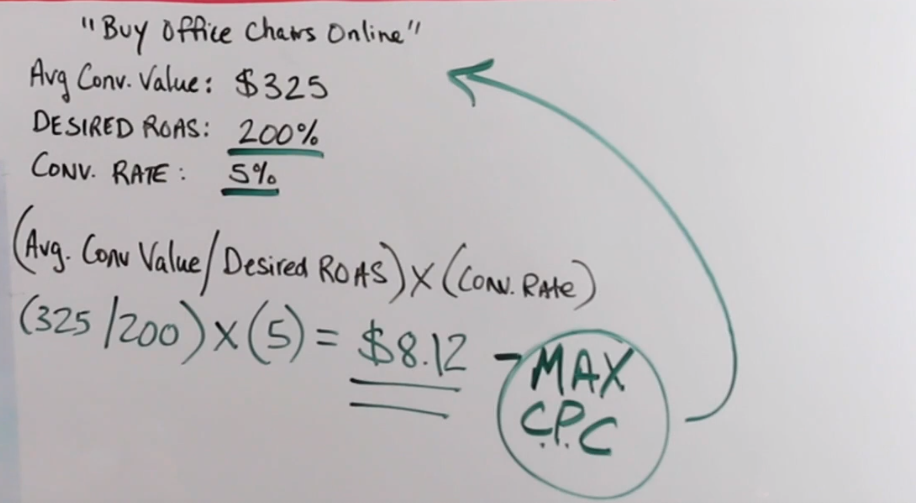 "Buy Office Chairs Online"
Avg Conv. Value: $325
DESIRED ROAS: 200%
CONV. RATE: 5%
(Avg. Conv Value/Desired ROAS) X (Conv. Rate)
(325/200) X (5) = $8.12 - MAX
C.P.C